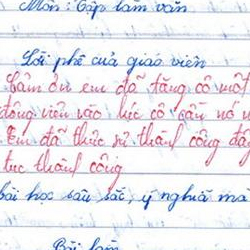 Môn: Tập làm văn
Lời phê của giáo viên
Cảm ơn em đã tặng cô một
động viên vào lúc cô cần nó
Em đã thực sự thành công
tục thành công
bài học sâu sắc, ý nghĩa mà
Bài làm